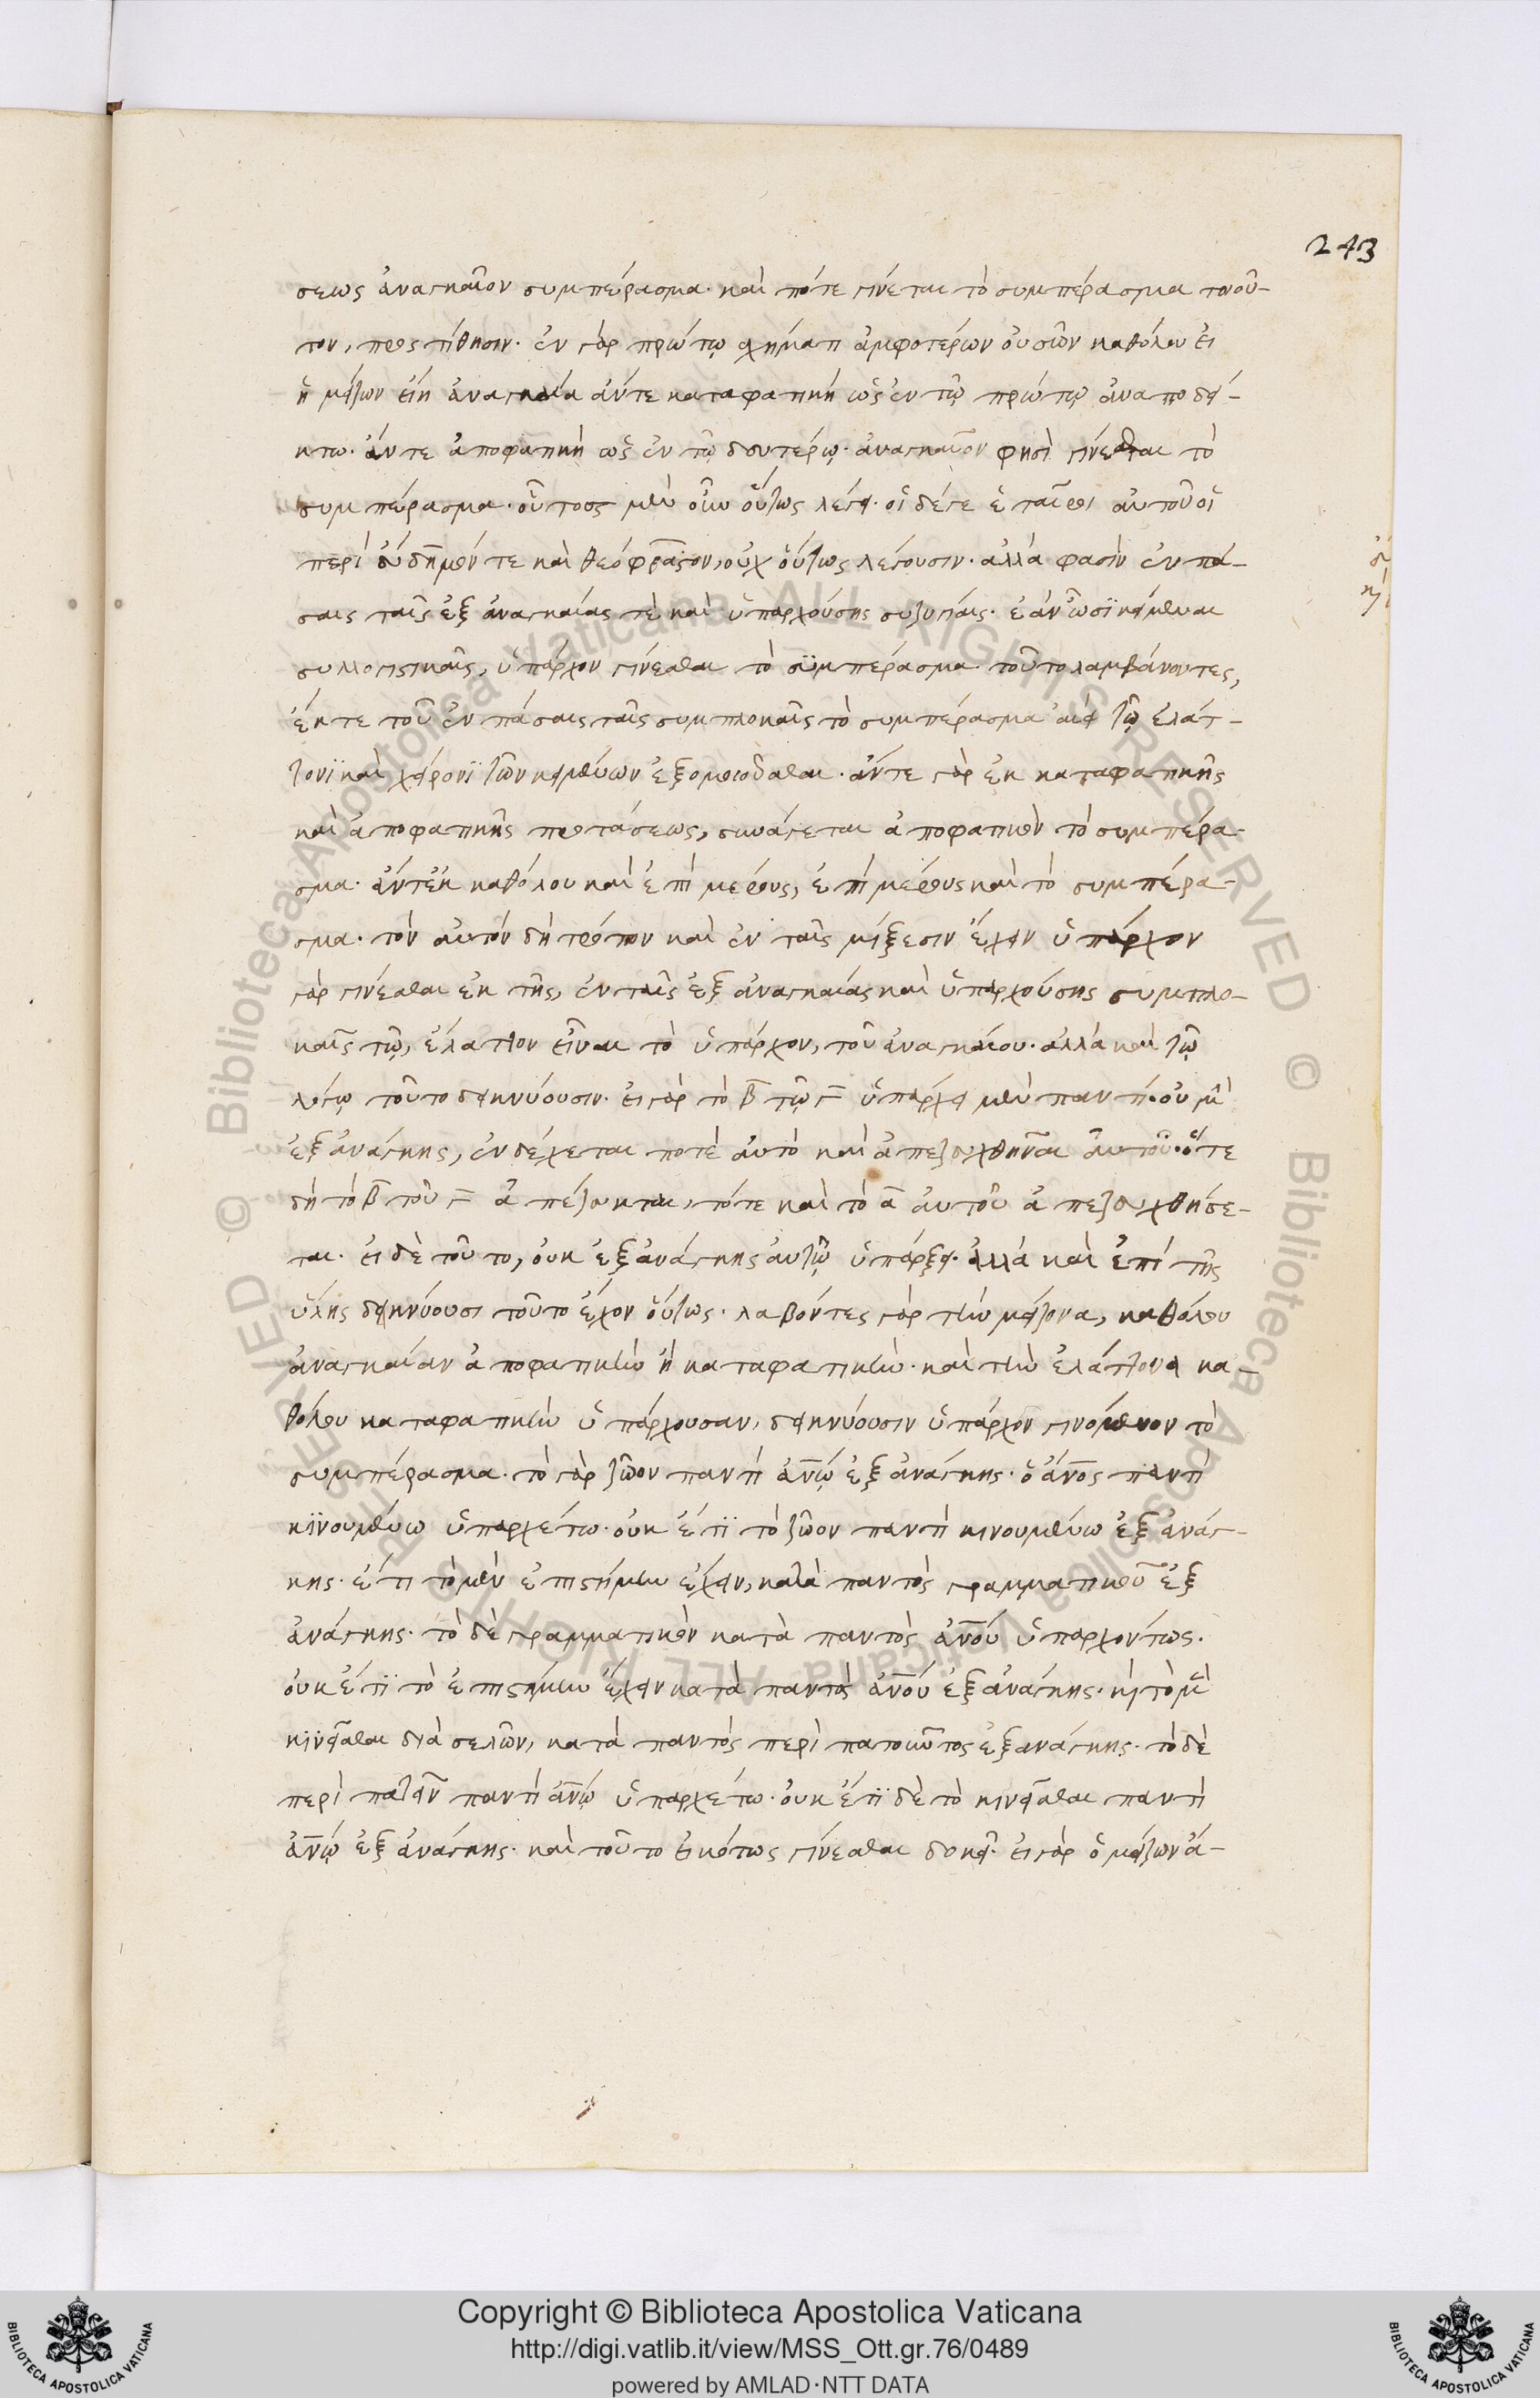 243
σεως ἀναγκαῖον συμπέρασμα· καὶ πότε γίνεται τὸ συμπέρασμα τοιοῦ-
τον, προστίθησιν· ἐν γὰρ πρώτῳ σχήματι ἀμφοτέρων οὐσῶν καθόλου εἰ
ἡ μείζων εἴη ἀναγκαία ἄντε καταφατικὴ ὡς ἐν τῷ πρώτῳ ἀναποδεί-
κτω· ἄν τε ἀποφατικὴ ὡς ἐν τῷ δευτέρῳ· ἀναγκαῖον φησὶ γίνεσθαι τὸ
συμπέρασμα· οὗτος μὲν οὖν οὕτως λέγει· οἱ δέ γε ἑταῖροι αὐτοῦ οἱ
περὶ εὔδημόν τε καὶ θεόφραστον, οὐχ οὕτως λέγουσιν· ἀλλά φασὶν ἐν πά-
σαις ταῖς ἐξ ἀναγκαίας τὲ καὶ ὑπαρχούσης συζυγίαις· ἐὰν ὦσϊ κείμεναι
συλλογιστικαῖς, ὑπάρχον γίνεσθαι τὸ συμπέρασμα· τοῦτο λαμβάνοντες,
ἔκ τε τοῦ ἐν πάσαις ταῖς συμπλοκαῖς τὸ συμπέρασμα ἀεὶ τῷ ἐλάτ-
τονϊ καὶ χείρονϊ τῶν κειμένων ἐξομοιοῦσθαι· ἄντε γὰρ ἐκ καταφατικῆς
καὶ ἀποφατικῆς προτάσεως, συνάγεται ἀποφατικὸν τὸ συμπέρα-
σμα· ἄντ' ἐκ καθόλου καὶ ἐπὶ μέρους, ἐπὶ μέρους καὶ τὸ συμπέρα-
σμα· τὸν αὐτὸν δὴ τρόπον καὶ ἐν ταῖς μίξεσιν ἔχειν ὑπάρχον
γὰρ γίνεσθαι ἐκ τῆς, ἐν ταῖς ἐξ ἀναγκαίας καὶ ὑπαρχούσης συμπλο-
καῖς τῷ, ἔλαττον εἶναι τὸ ὑπάρχον, τοῦ ἀναγκαίου· ἀλλὰ καὶ τῷ
λόγῳ τοῦτο δεικνύουσιν· εἰ γὰρ τὸ β̅ τῷ γ̅ ὑπάρχει μὲν παντί· οὐ μὴ
ἐξ ἀνάγκης, ἐνδέχεται ποτὲ αὐτὸ καὶ ἀπεζεῦχθηναι αὐτοῦ· ὅτε
δὴ τὸ β̅ τοῦ γ̅ ἀπέζευκται, τότε καὶ τὸ α̅ αὐτοῦ ἀπεζευχθήσε-
ται· εἰ δὲ τοῦτο, οὐκ ἐξ ἀνάγκης αὐτῷ ὑπάρξει· ἀλλὰ καὶ ἐπὶ τῆς
ὕλης δεικνύουσι τοῦτο ἔχον οὕτως· λαβόντες γὰρ τὴν μείζονα, καθόλου
ἀναγκαίαν ἀποφατικὴν ἢ καταφατικὴν· καὶ τὴν ἐλάττονα κα-
θόλου καταφατικὴν ὑπάρχουσαν, δεικνύουσιν ὑπάρχον γινόμενον τὸ
συμπέρασμα· τὸ γὰρ ζῶον παντὶ ἀν̅ῳ ἐξ ἀνάγκης· ὁ ἄν̅ος παντὶ
κϊνουμένω ὑπαρχέτω· οὐκ ἔτϊ τὸ ζῶον παντὶ κινουμένω ἐξ ἀνάγ-
κης· ἔτι τὸ μὲν ἐπιστήμην ἔχειν, κατὰ παντὸς γραμματικοῦ ἐξ
ἀνάγκης· τὸ δὲ γραμματικὸν κατὰ παντὸς ἀν̅ου ὑπαρχόντως·
οὐκ ἔτϊ τὸ ἐπιστήμην ἔχειν κατὰ παντὸς ἀν̅ου ἐξ ἀνάγκης· κὶ τὸ μὲν
κϊνεῖσθαι διὰ σκελῶν, κατὰ παντὸς περὶπατοῦντος ἐξ ἀνάγκης· τὸ δὲ
περὶ πατεῖν παντὶ ἀν̅ῳ ὑπαρχέτω· οὐκ ἔτϊ δὲ τὸ κινεῖσθαι παντὶ
ἀν̅ῳ ἐξ ἀνάγκης· καὶ τοῦτο εἰκότως γίνεσθαι δοκεῖ· εἰ γὰρ ὁ μείζων ἄ-
Copyright © Biblioteca Apostolica Vaticana
http://digi.vatlib.it/view/MSS_Ott.gr.76/0489
powered by AMLAD·NTT DATA